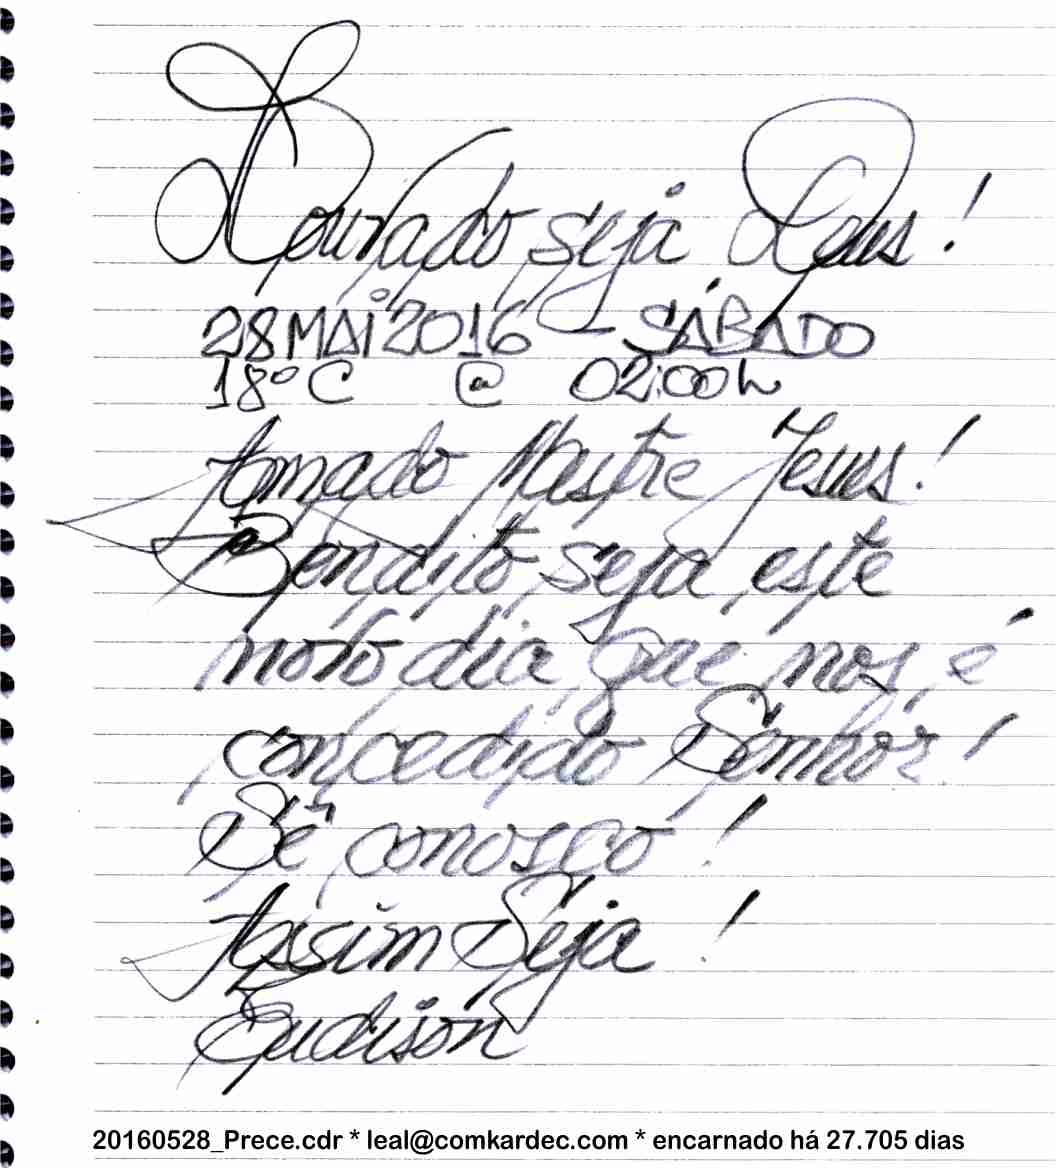 Louvado seja Deus!
28 MAI 2016 SÁBADO
18°C @ 02:00h
Amado Mestre Jesus!
Bendito seja este
novo dia que nos é
concedido Senhor!
Sê conosco!
Assim Seja!
Eudison
20160528_Prece.cdr * leal@comkardec.com * encarnado há 27.705 dias